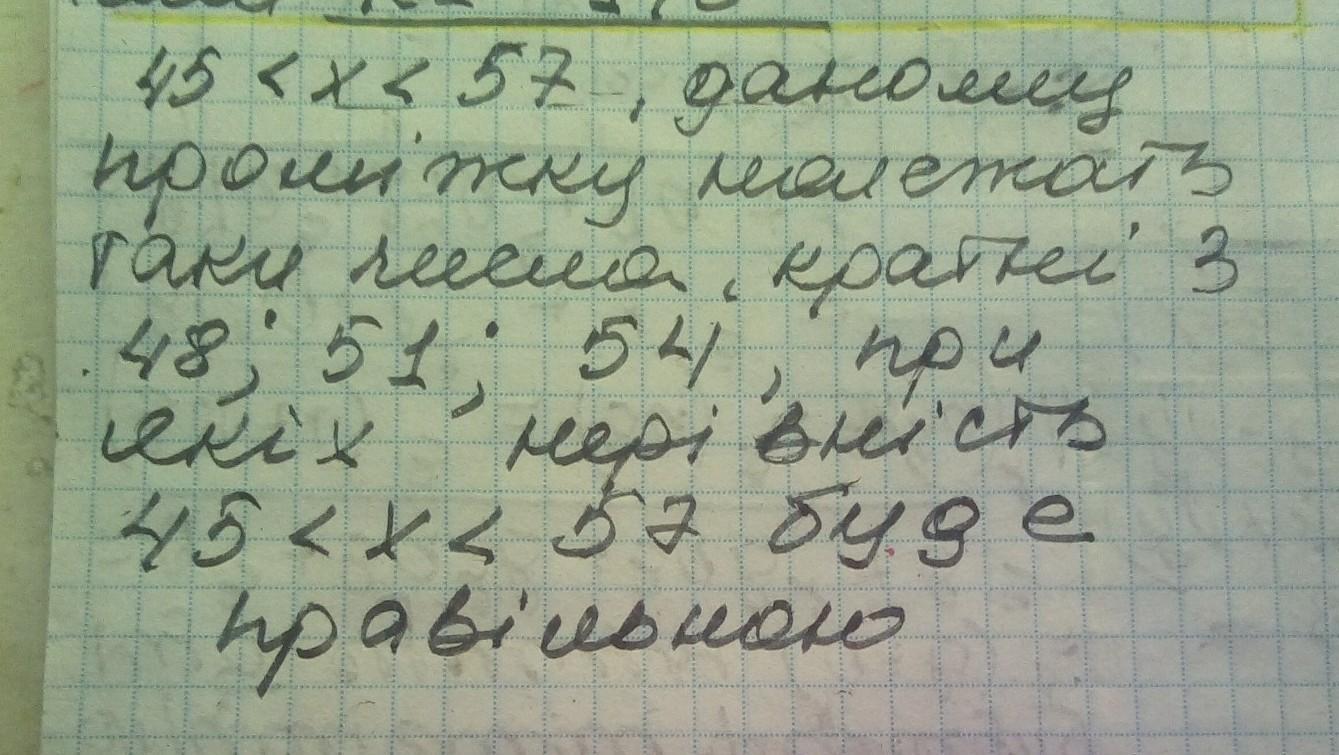 45 < x < 57, даному
проміжку належать
таки числа, кратні 3
48; 51; 54, при
якіх нерівність
45 < x < 57 буде
правільною